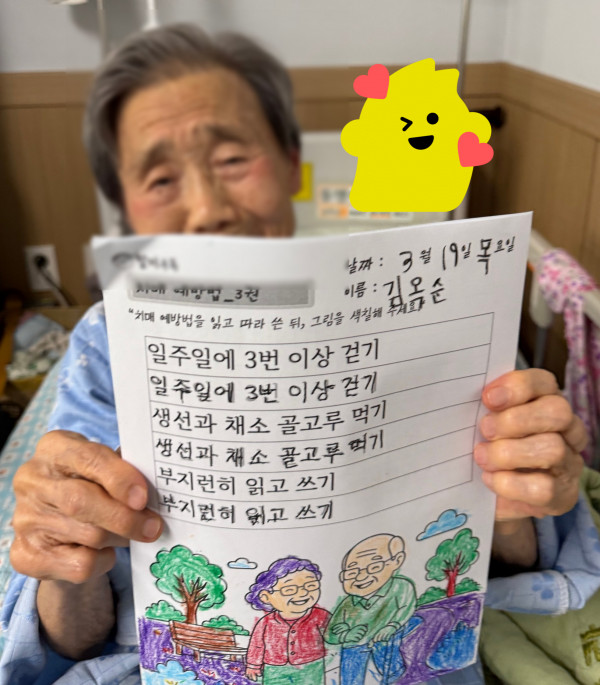 날짜 : 3월 19일 목요일
치매 예방법_3권
이름 : 김옥순
"치매 예방법을 읽고 따라 쓴 뒤, 그림을 색칠해 주세요!
일주일에 3번 이상 걷기
일주일에 3번 이상 걷기
생선과 채소 골고루 먹기
생선과 채소 골고루 먹기
부지런히 읽고 쓰기
부지런히 읽고 쓰기